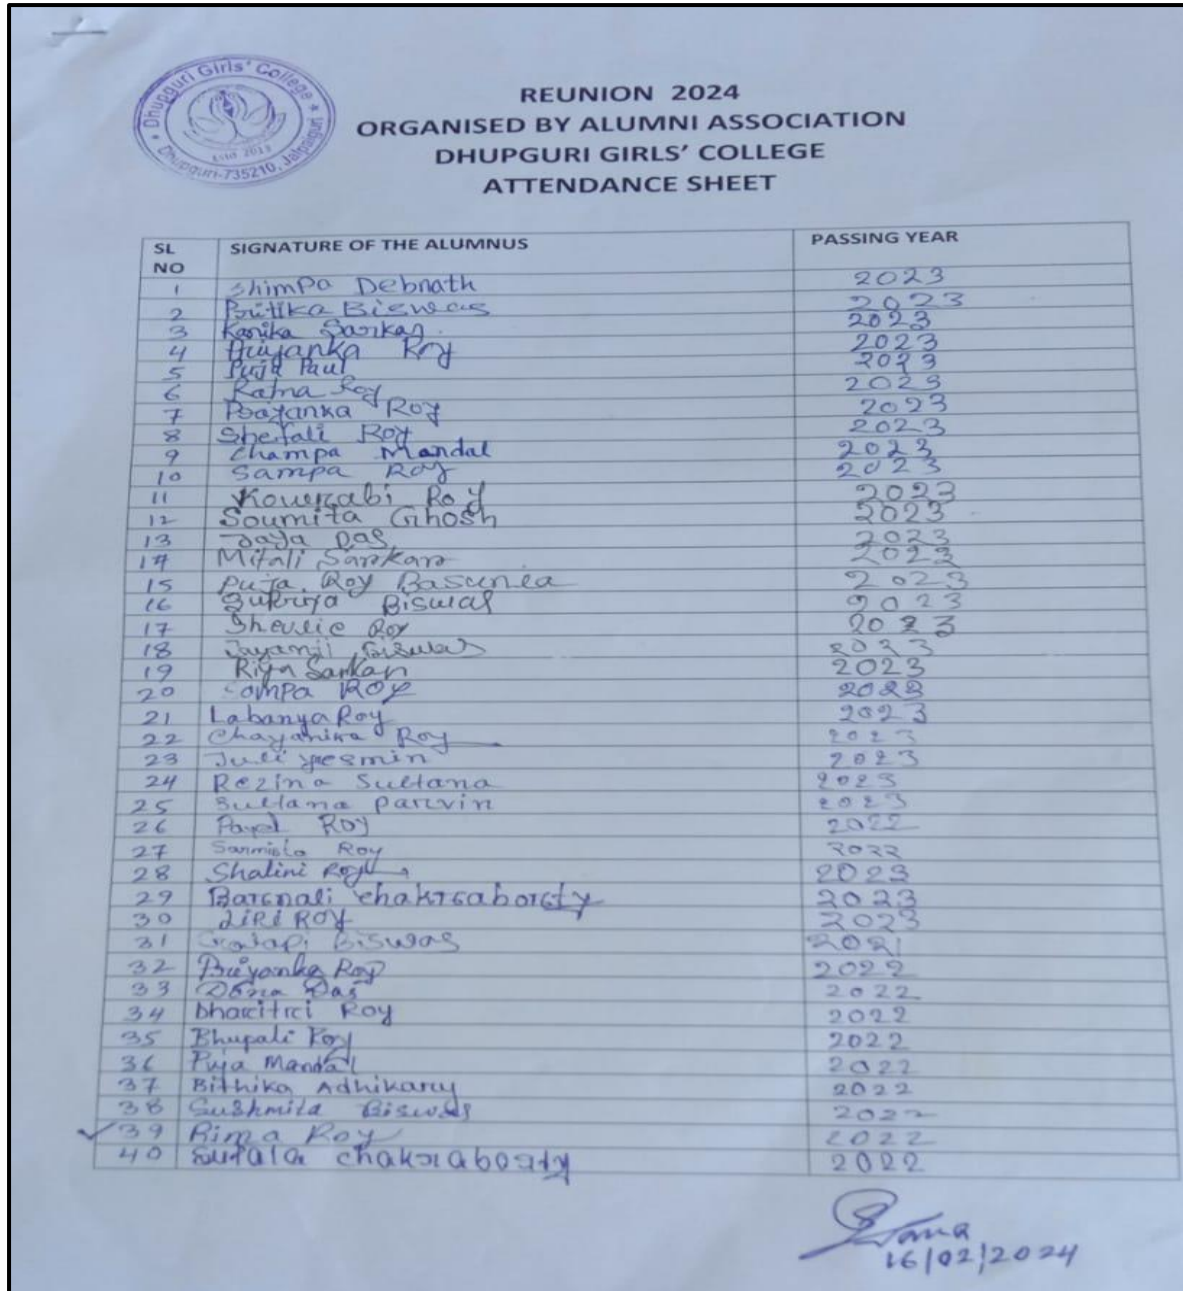 Dhupguri Girls' College
Estd 2013
Dhupguri-735210, Jalpaiguri
REUNION 2024
ORGANISED BY ALUMNI ASSOCIATION
DHUPGURI GIRLS' COLLEGE
ATTENDANCE SHEET
SL NO SIGNATURE OF THE ALUMNUS PASSING YEAR
1 Shimpa Debnath 2023
2 Pritika Biswas 2023
3 Kanika Sarkar 2023
4 Priyanka Roy 2023
5 Puja Paul 2023
6 Ratna Roy 2023
7 Prayanka Roy 2023
8 Shefali Roy 2023
9 Champa Mandal 2023
10 Sampa Roy 2023
11 Roy 2023
12 Soumita Ghosh 2023
13 Jaya Das 2023
14 Mitali Sarkar 2023
15 Puja Roy Basunia 2023
16 Supriya Biswas 2023
17 Roy 2023
18 Biswas 2023
19 Riya Sarkar 2023
20 Sompa Roy 2023
21 Labanya Roy 2023
22 Chayanika Roy 2023
23 Juli yesmin 2023
24 Rezina Sultana 2023
25 Sultana parvin 2023
26 Payel Roy 2022
27 Sarmista Roy 2022
28 Shalini Roy 2023
29 Barnali Chakraborty 2023
30 LIRI ROY 2023
31 Golapi Biswas 2021
32 Priyanka Roy 2022
33 Dona Das 2022
34 Dharitri Roy 2022
35 Bhupali Roy 2022
36 Puja Mandal 2022
37 Bithika Adhikary 2022
38 Sushmita Biswas 2022
39 Rima Roy 2022
40 chakraborty 2022
16/02/2024